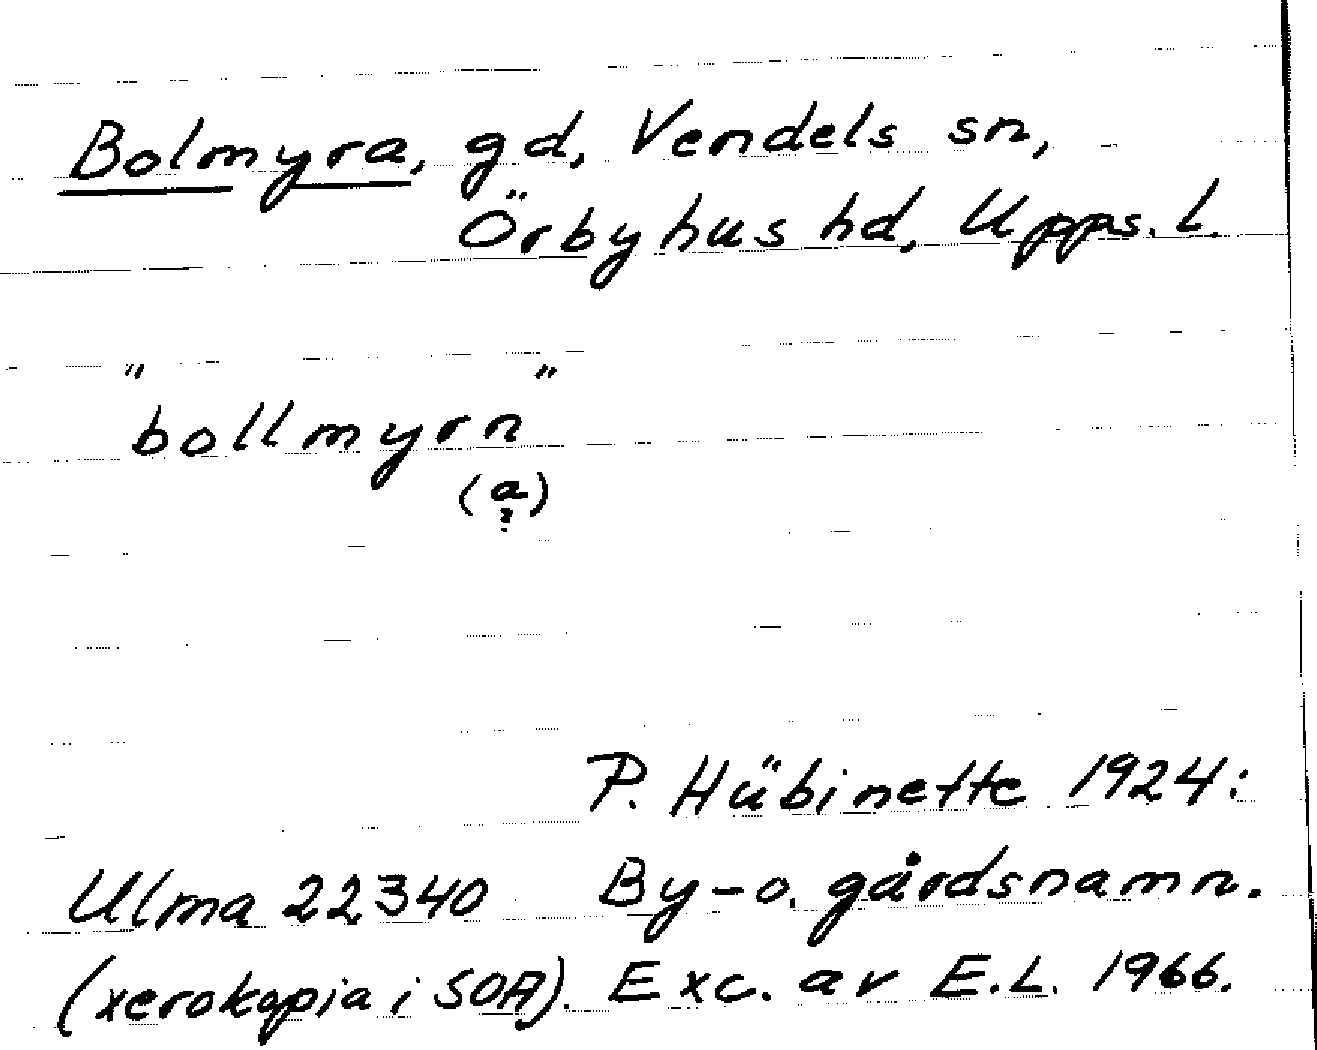 Bolmyra, gd, Vendels sn,
Örbyhus hd, Upps. l.
"bollmyrn"
(a)
?
P. Hübinette 1924:
Ulma 22340 By- o. gårdsnamn.
(xerokopia i SOA). Exc. av E.L. 1966.